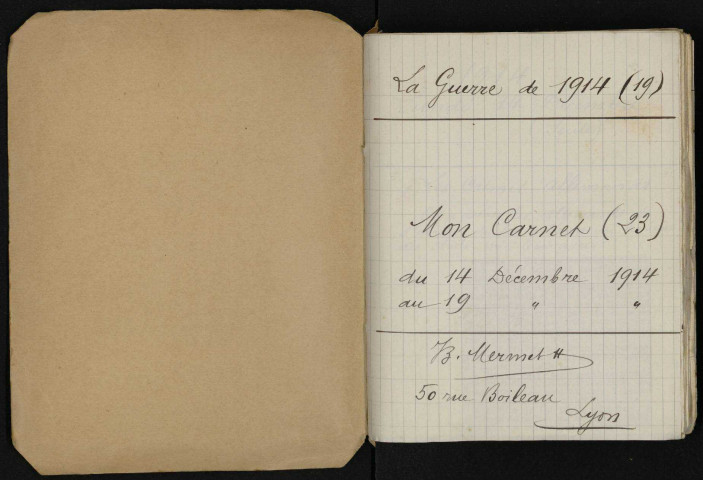 La Guerre de 1914 (19)
Mon Carnet (23)
du 14 Décembre 1914
au 19 " "
B. Mermet
50 rue Boileau
Lyon